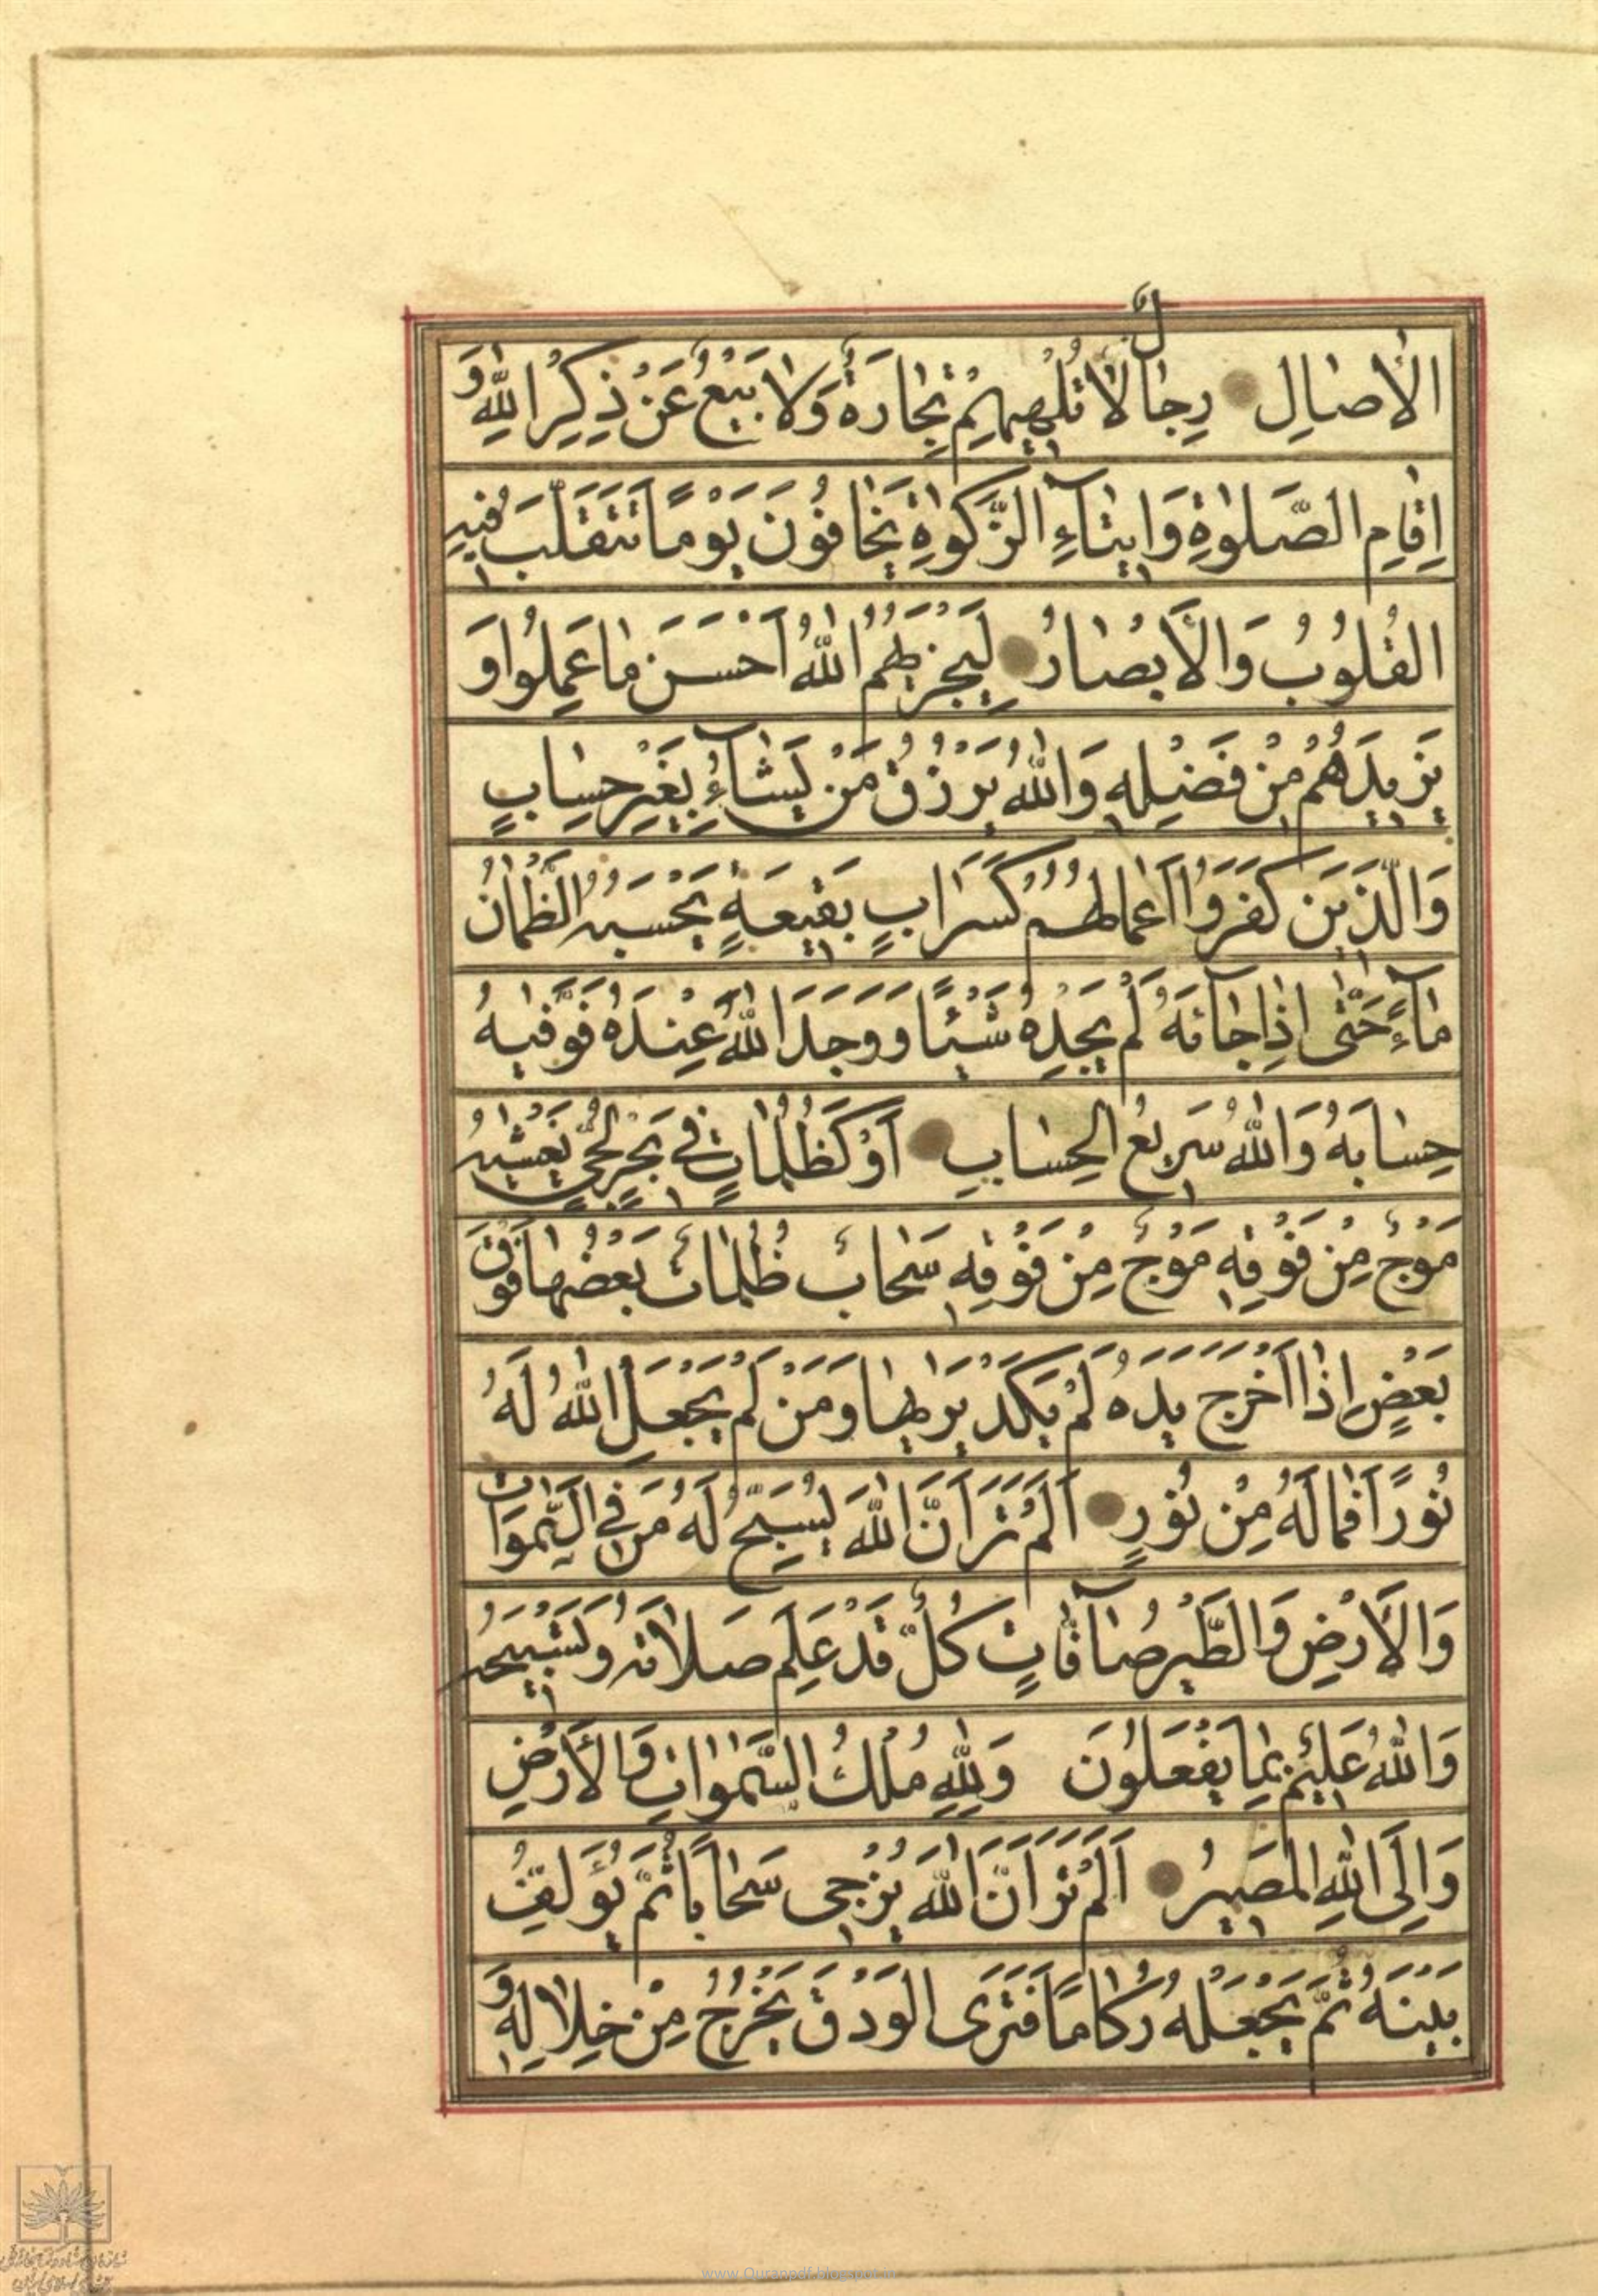 الْاٰصٰالِ رِجٰالٌ لاٰ تُلْهِيهِمْ تِجٰارَةٌ وَلاٰ بَيْعٌ عَنْ ذِكْرِ اللّٰهِ وَ
اِقٰامِ الصَّلوٰةِ وَاِيتٰآءِ الزَّكوٰةِ يَخٰافُونَ يَوْمًا تَتَقَلَّبُ فِيهِ
الْقُلُوبُ وَالْاَبْصٰارُ لِيَجْزِيَهُمُ اللّٰهُ اَحْسَنَ مٰا عَمِلُوا وَ
يَزِيدَهُمْ مِنْ فَضْلِهِ وَاللّٰهُ يَرْزُقُ مَنْ يَشٰآءُ بِغَيْرِ حِسٰابٍ
وَالَّذِينَ كَفَرُوا اَعْمٰالُهُمْ كَسَرٰابٍ بِقِيعَةٍ يَحْسَبُهُ الظَّمْاٰنُ
مٰآءً حَتّٰى اِذٰا جٰآئَهُ لَمْ يَجِدْهُ شَيْئًا وَوَجَدَ اللّٰهَ عِنْدَهُ فَوَفّٰيهُ
حِسٰابَهُ وَاللّٰهُ سَرِيعُ الْحِسٰابِ اَوْ كَظُلُمٰاتٍ فِي بَحْرٍ لُجِّيٍّ يَغْشٰيهُ
مَوْجٌ مِنْ فَوْقِهِ مَوْجٌ مِنْ فَوْقِهِ سَحٰابٌ ظُلُمٰاتٌ بَعْضُهٰا فَوْقَ
بَعْضٍ اِذٰا اَخْرَجَ يَدَهُ لَمْ يَكَدْ يَرٰيهٰا وَمَنْ لَمْ يَجْعَلِ اللّٰهُ لَهُ
نُورًا فَمٰا لَهُ مِنْ نُورٍ اَلَمْ تَرَ اَنَّ اللّٰهَ يُسَبِّحُ لَهُ مَنْ فِي السَّمٰوَاتِ
وَالْاَرْضِ وَالطَّيْرُ صٰآفّٰاتٍ كُلٌّ قَدْ عَلِمَ صَلاٰتَهُ وَتَسْبِيحَهُ
وَاللّٰهُ عَلِيمٌ بِمٰا يَفْعَلُونَ وَلِلّٰهِ مُلْكُ السَّمٰوٰاتِ وَالْاَرْضِ
وَاِلَى اللّٰهِ الْمَصِيرُ اَلَمْ تَرَ اَنَّ اللّٰهَ يُزْجِي سَحٰابًا ثُمَّ يُؤَلِّفُ
بَيْنَهُ ثُمَّ يَجْعَلُهُ رُكٰامًا فَتَرَى الْوَدْقَ يَخْرُجُ مِنْ خِلاٰلِهِ وَ
www.Quranpdf.blogspot.in